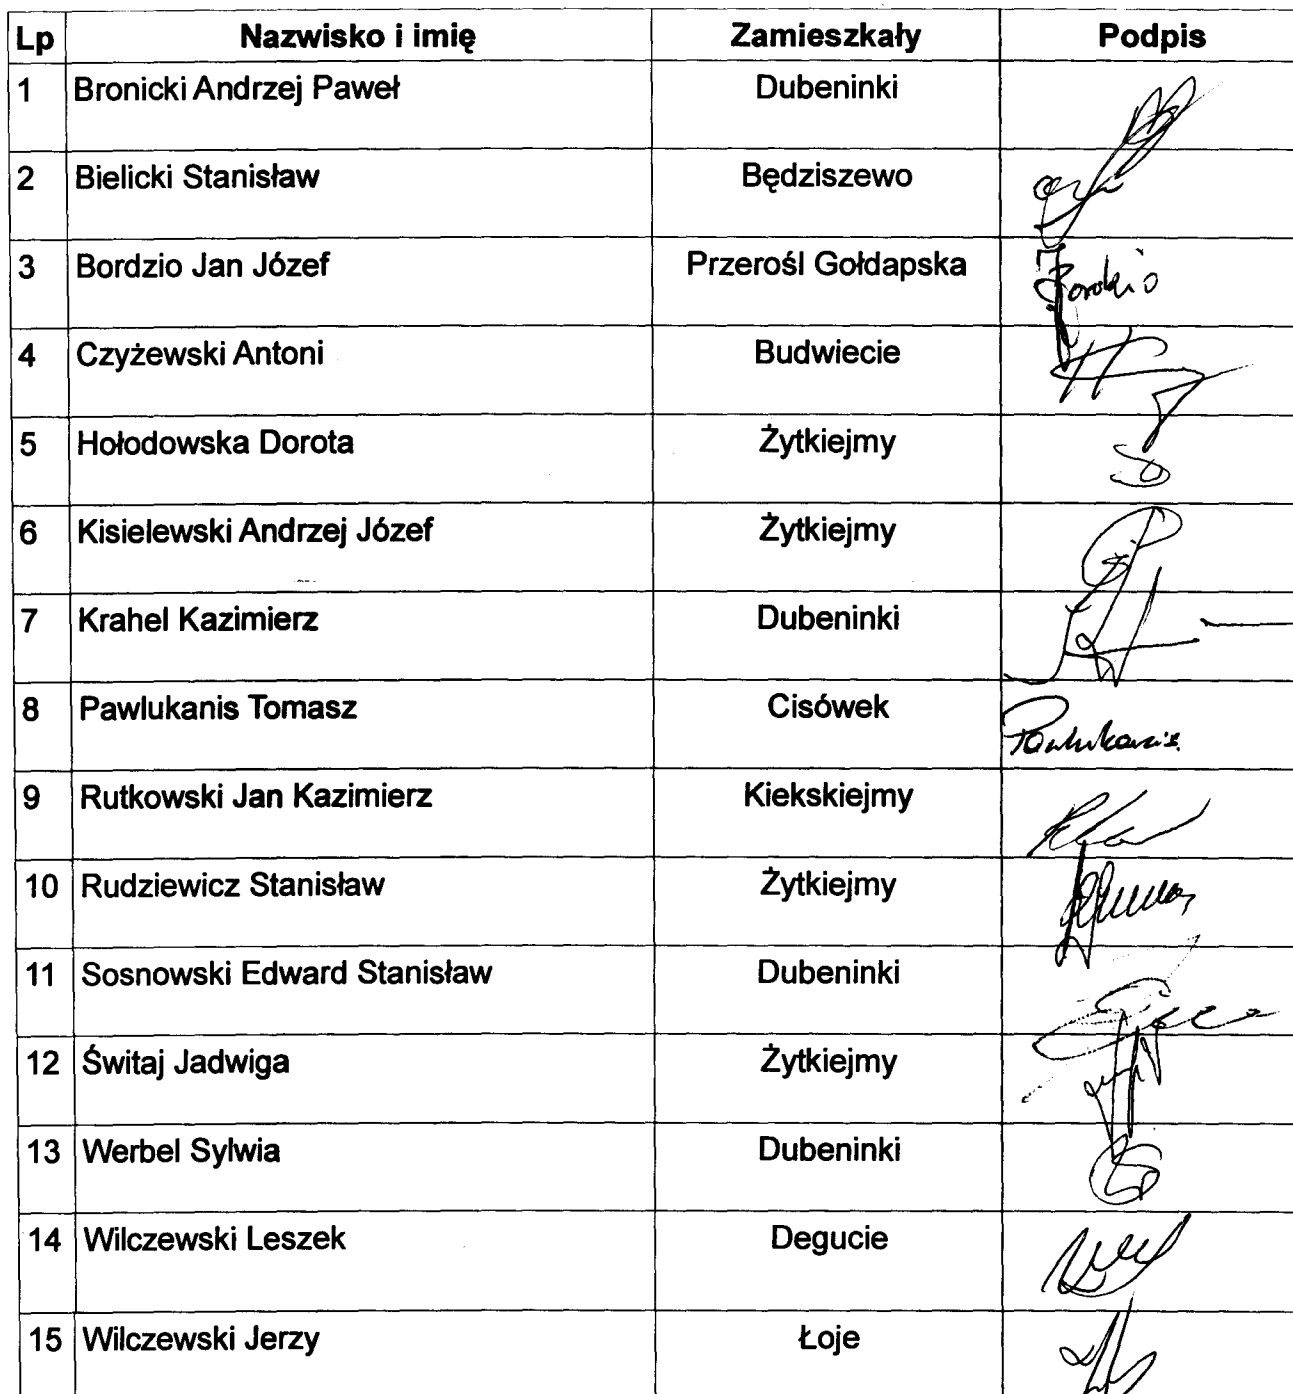 Lp Nazwisko i imię Zamieszkały Podpis
1 Bronicki Andrzej Paweł Dubeninki
2 Bielicki Stanisław Będziszewo
3 Bordzio Jan Józef Przerośl Gołdapska Bordzio
4 Czyżewski Antoni Budwiecie
5 Hołodowska Dorota Żytkiejmy
6 Kisielewski Andrzej Józef Żytkiejmy
7 Krahel Kazimierz Dubeninki
8 Pawlukanis Tomasz Cisówek Pawlukanis
9 Rutkowski Jan Kazimierz Kiekskiejmy
10 Rudziewicz Stanisław Żytkiejmy
11 Sosnowski Edward Stanisław Dubeninki
12 Świtaj Jadwiga Żytkiejmy
13 Werbel Sylwia Dubeninki
14 Wilczewski Leszek Degucie
15 Wilczewski Jerzy Łoje